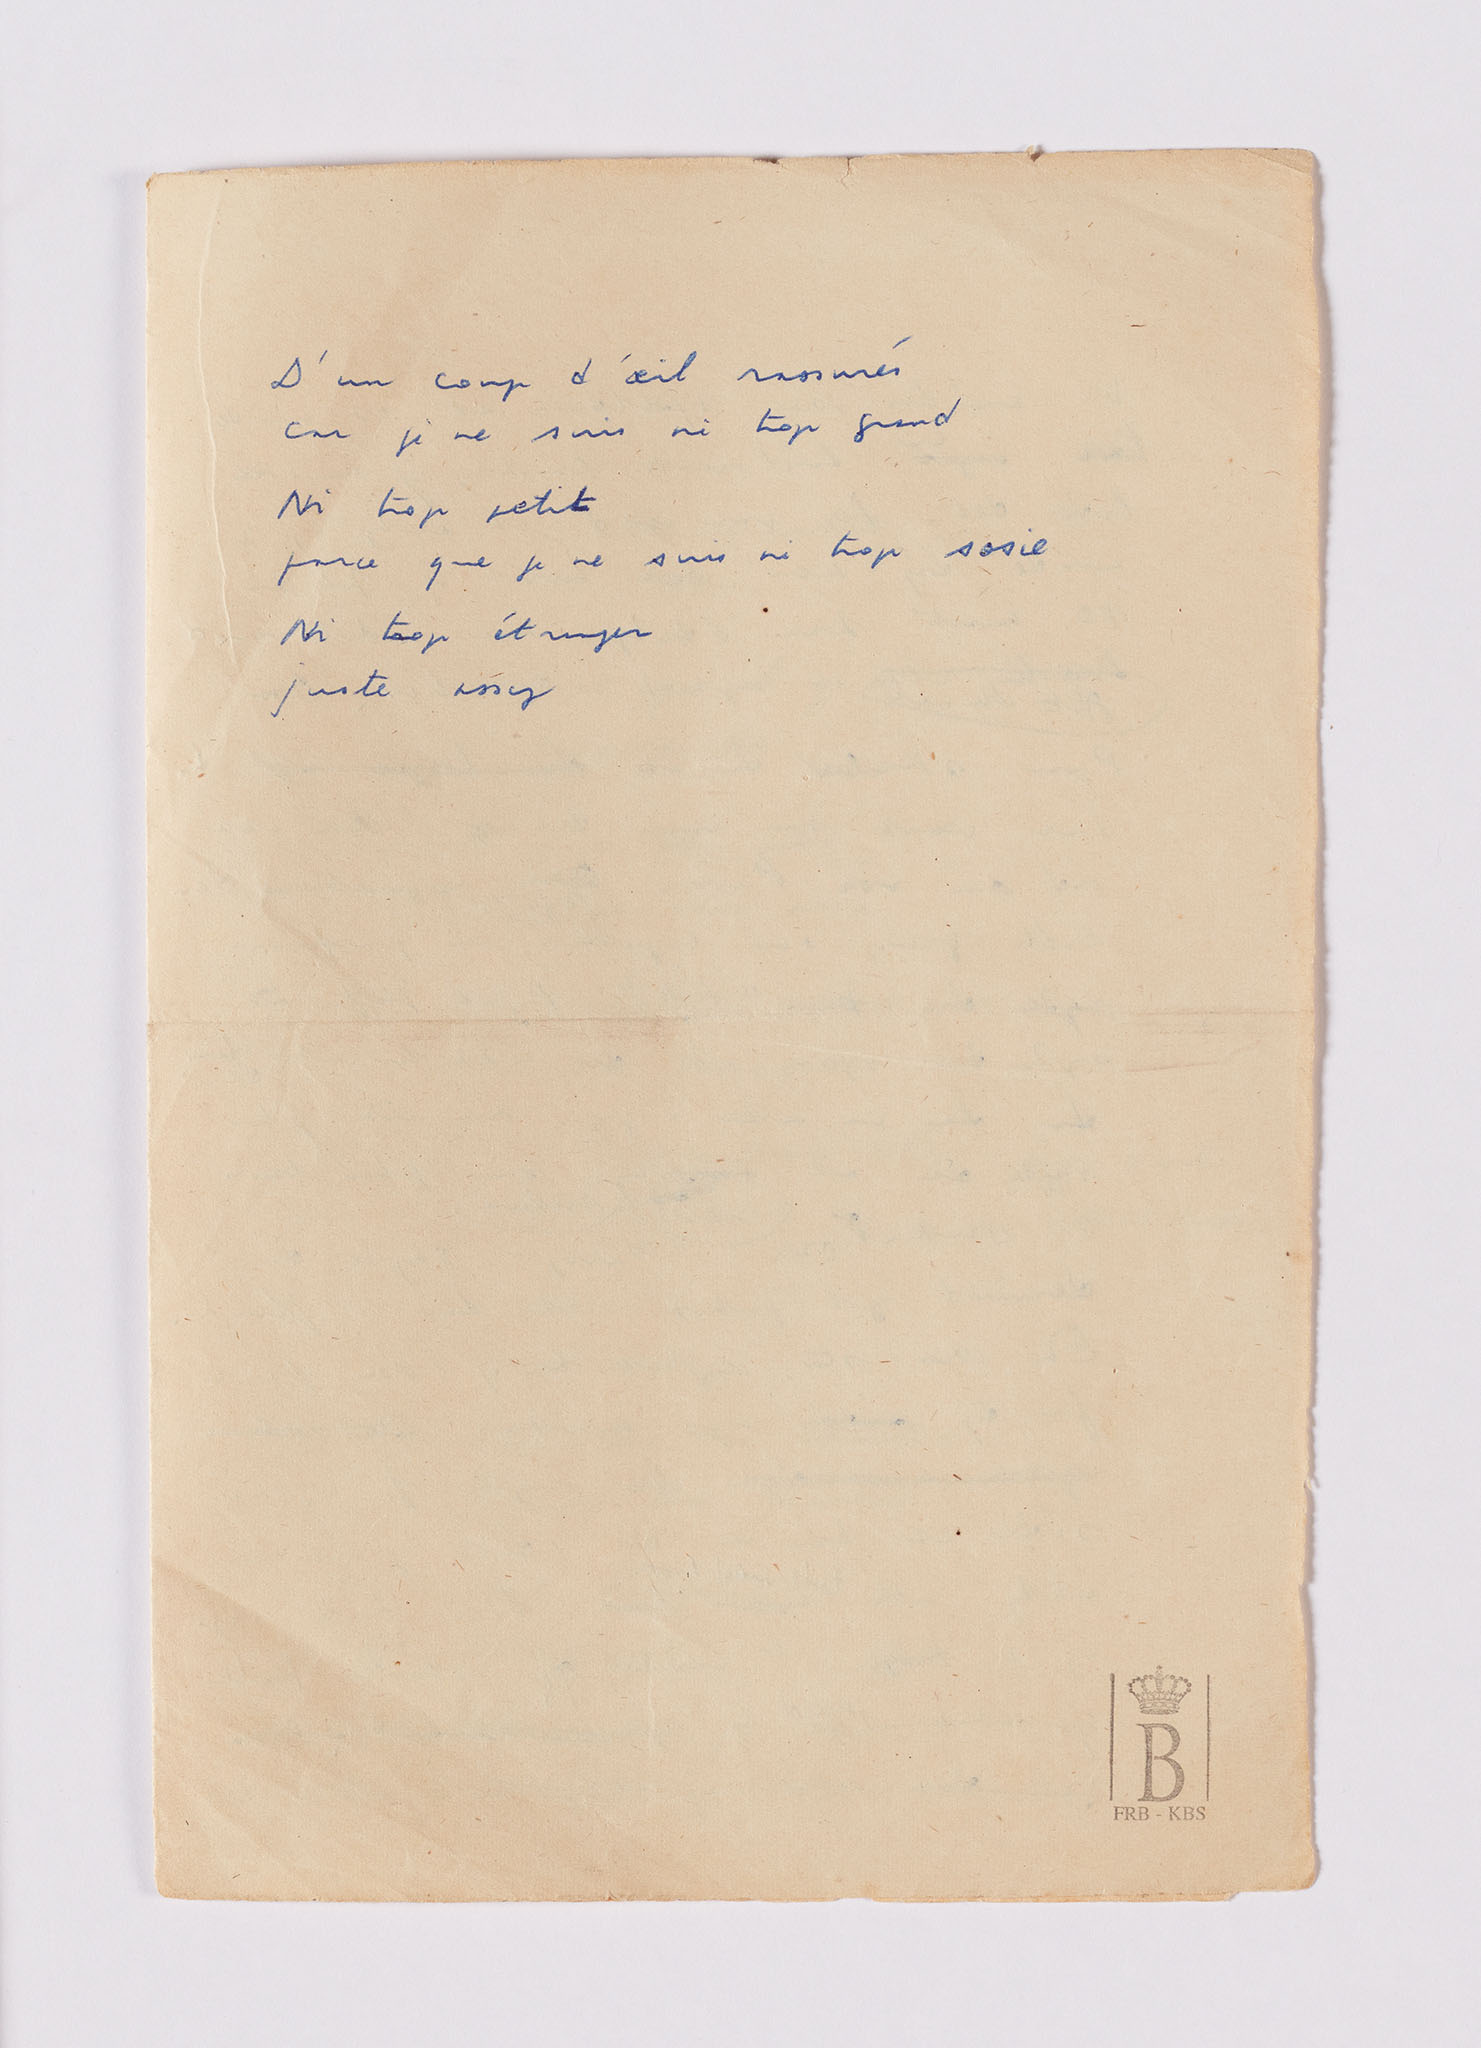 D'un coup d'œil rassurés
car je ne suis ni trop grand
Ni trop petit
parce que je ne suis ni trop sosie
Ni trop étranger
juste assez
B
FRB - KBS